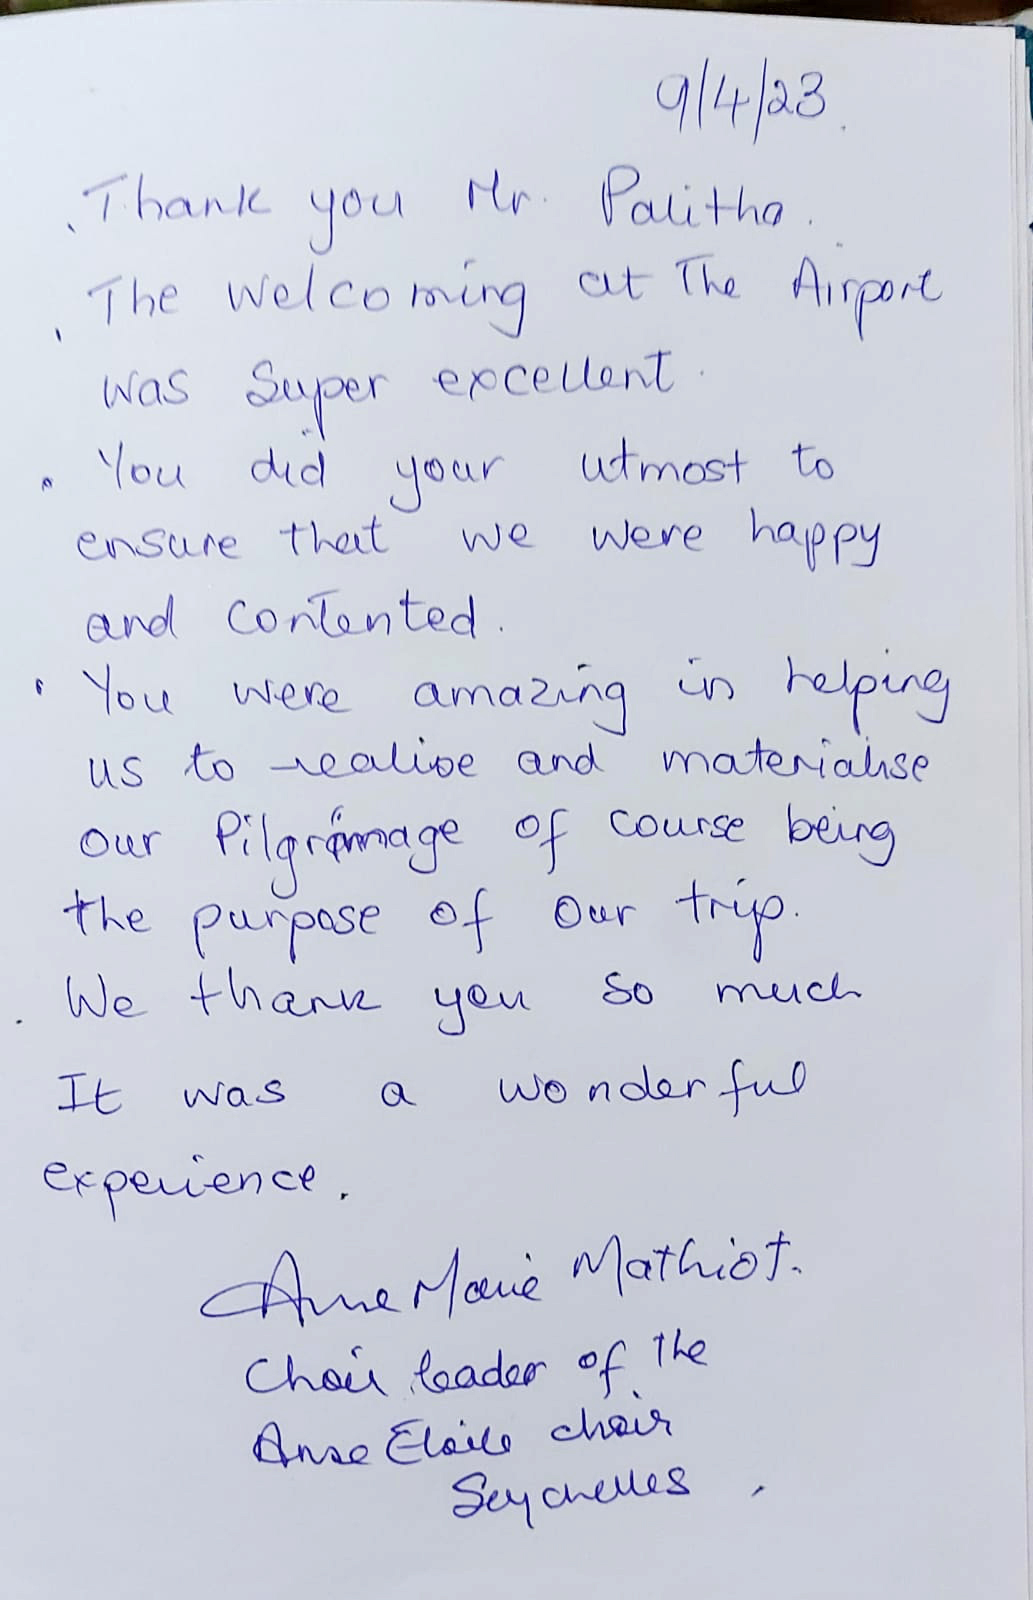 9/4/23.
Thank you Mr. Palitha.
The welcoming at The Airport
was Super excellent.
• You did your utmost to
ensure that we were happy
and contented.
• You were amazing in helping
us to realise and materialise
our Pilgrimage of course being
the purpose of our trip.
We thank you so much
It was a wonderful
experience.
Anne Marie Mathiot.
Choir leader of the
Anse Etoile choir
Seychelles.